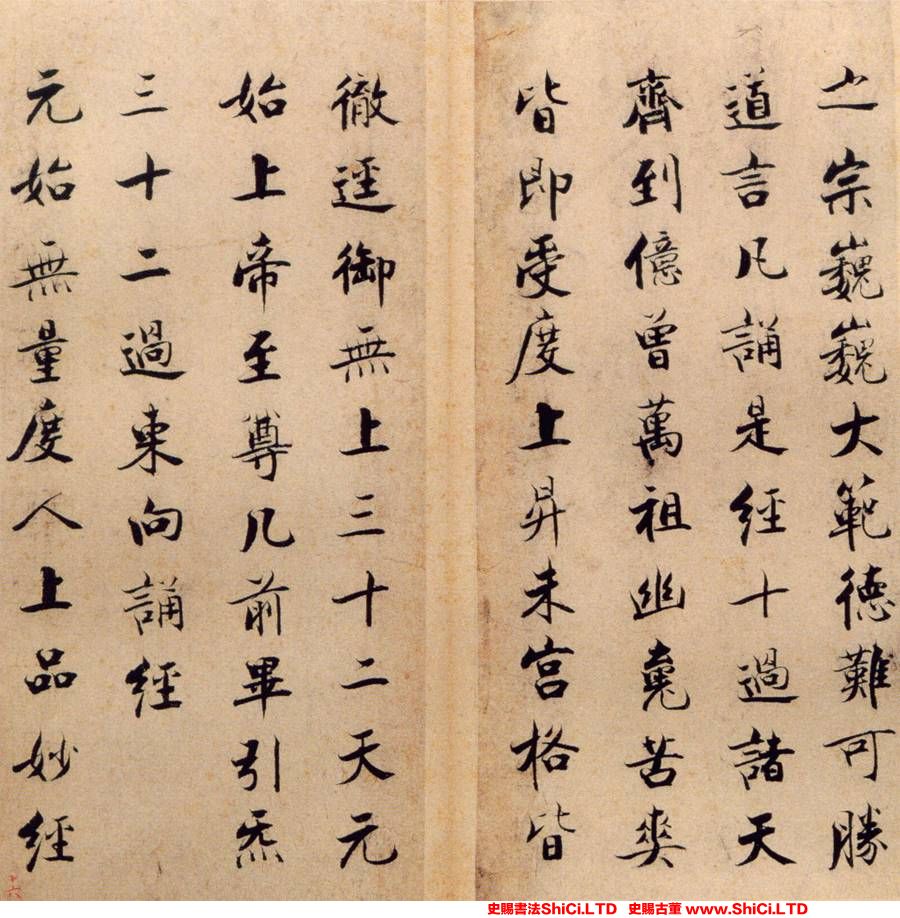 之宗巍巍大範德難可勝
道言凡誦是經十過諸天
齊到億曾萬祖幽魂苦爽
皆即受度上昇朱宮格皆
徹逕御無上三十二天元
始上帝至尊几前畢引炁
三十二過東向誦經
元始無量度人上品妙經
十六
史賜書法ShiCi.LTD 史賜古董 www.ShiCi.LTD